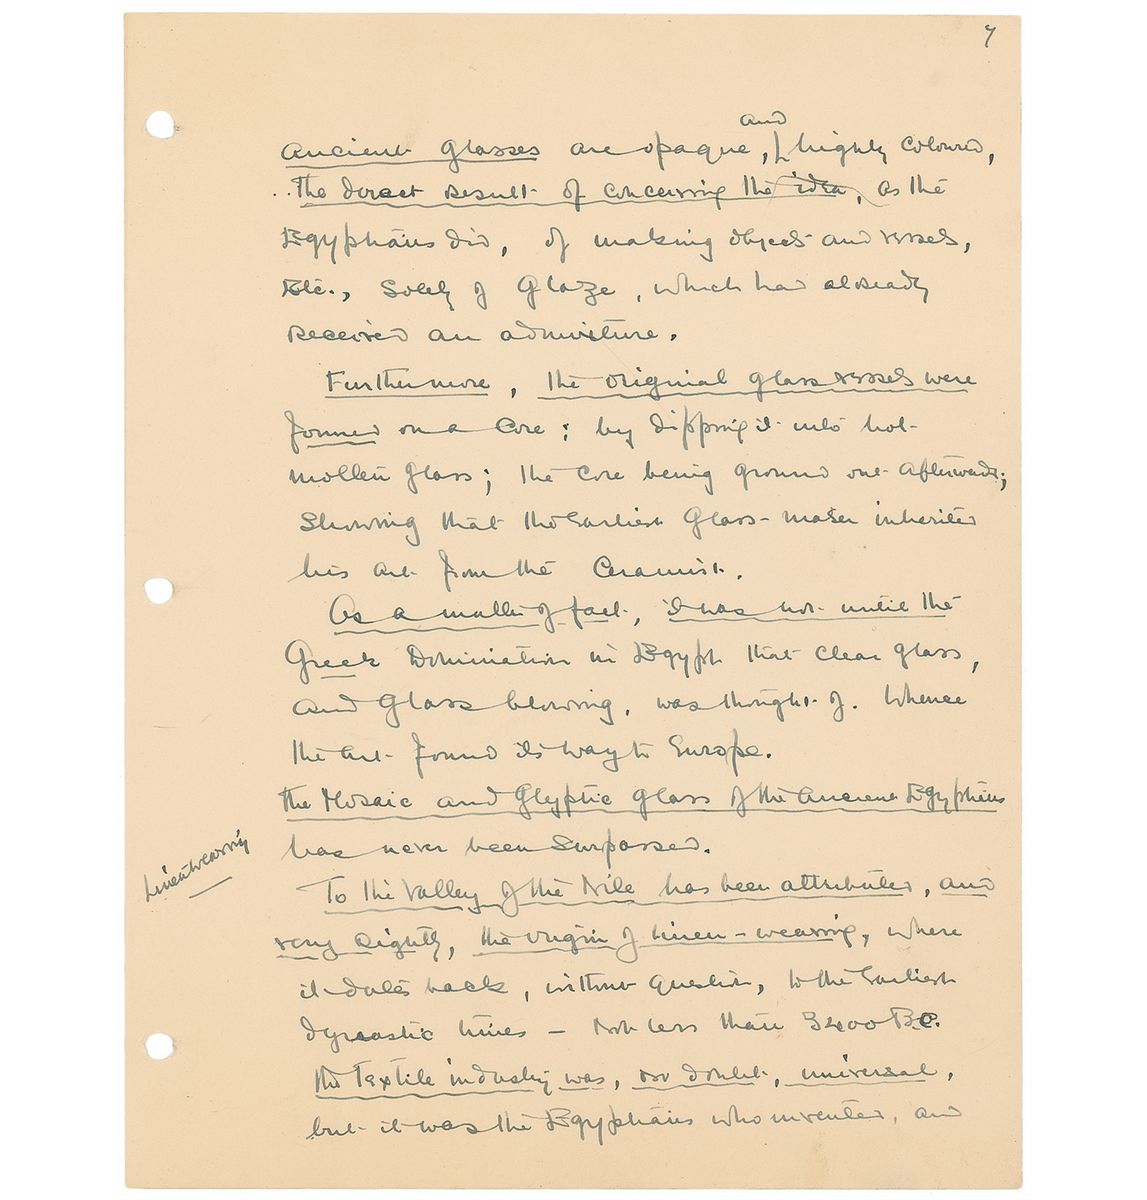 7
and
Ancient Glasses are opaque, highly coloured,
The direct result of conceiving the idea, as the
Egyptians did, of making objects and vessels,
Etc., solely of Glaze, which had already
received an admixture.
Furthermore, the original glass vessels were
formed on a core; by dipping it into hot
molten glass; the core being ground out afterwards;
showing that the earliest Glass-maker inherited
his art from the Ceramist.
As a matter of fact, it was not until the
Greek Domination in Egypt that clear glass,
and glass blowing, was thought of. Whence
the art found its way to Europe.
The Mosaic and Glyptic glass of the Ancient Egyptians
has never been surpassed.
Linen weaving
To the Valley of the Nile has been attributed, and
very rightly, the origin of linen-weaving, where
it dates back, without question, to the Earliest
dynastic times – not less than 3400 B.C.
The Textile industry was, no doubt, universal,
but it was the Egyptians who invented, and